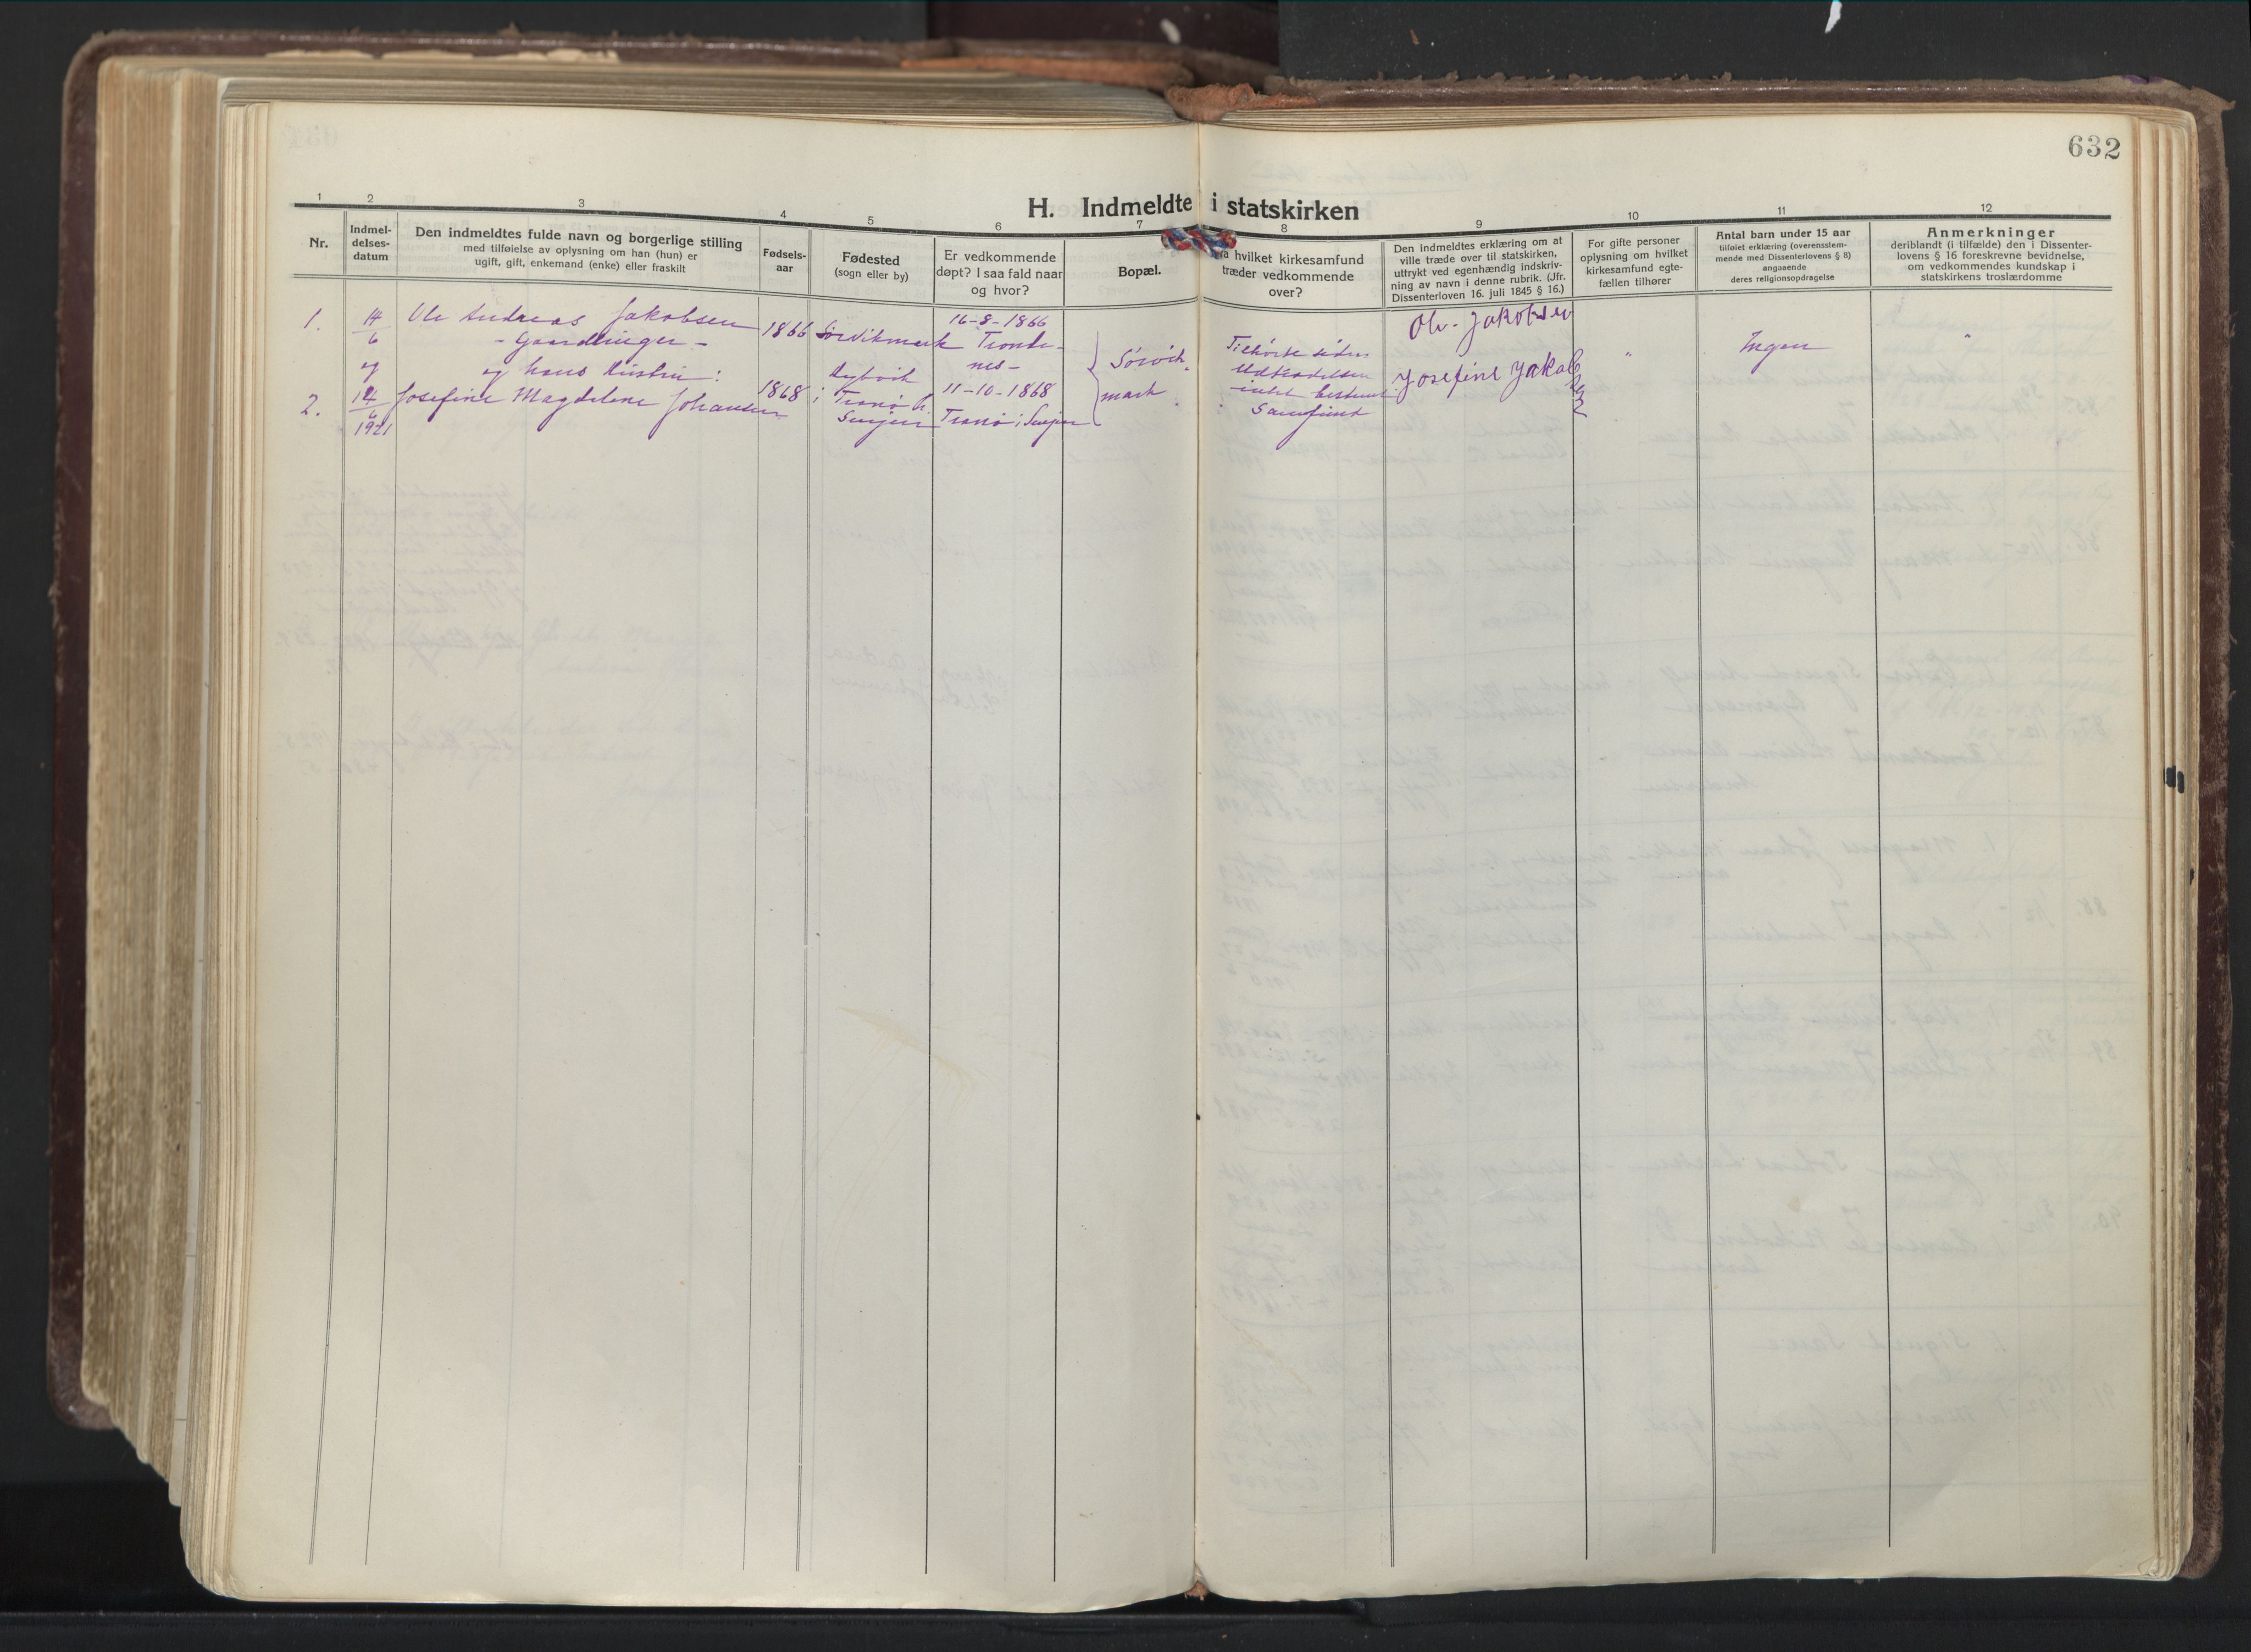 632
H. Indmeldte i statskirken
1 2 3 4 5 6 7 8 9 10 11 12
Nr.
Indmel-
delses-
datum
Den indmeldtes fulde navn og borgerlige stilling
med tilføielse av oplysning om han (hun) er
ugift, gift, enkemand (enke) eller fraskilt
Fødsels-
aar
Fødested
(sogn eller by)
Er vedkommende
døpt? I saa fald naar
og hvor?
Bopæl.
a hvilket kirkesamfund
træder vedkommende
over?
Den indmeldtes erklæring om at
ville træde over til statskirken,
uttrykt ved egenhændig indskriv-
ning av navn i denne rubrik. (Jfr.
Dissenterloven 16. juli 1845 § 16.)
For gifte personer
oplysning om hvilket
kirkesamfund egte-
fællen tilhører
Antal barn under 15 aar
tilføiet erklæring (overensstem-
mende med Dissenterlovens § 8)
angaaende
deres religionsopdragelse
Anmerkninger
deriblandt (i tilfælde) den i Dissenter-
lovens § 16 foreskrevne bevidnelse,
om vedkommendes kundskap i
statskirkens troslærdomme
1.
14/6
og
Ole Andreas Jakobsen
- Gaardbruger -
og hans Hustru:
1866
Sørvikmark
16-8-1866
Tronde-
nes-
2.
14/6
1921
Josefine Magdelene Johansen
1868
i Tranø
Senjen
11-10-1868
Tranø i Senjen
Sørvik
mark
Tilhørte siden
Udtrædelsen
intet bestemt
Samfund
Ole Jakobsen
Josefine Jakobsen
"
Ingen
"